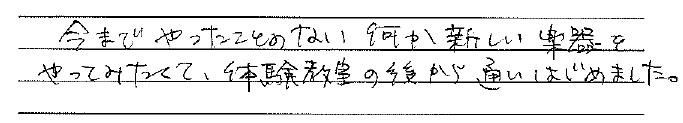 今までやったことのない何か新しい楽器を
やってみたくて、体験教室の後から通いはじめました。